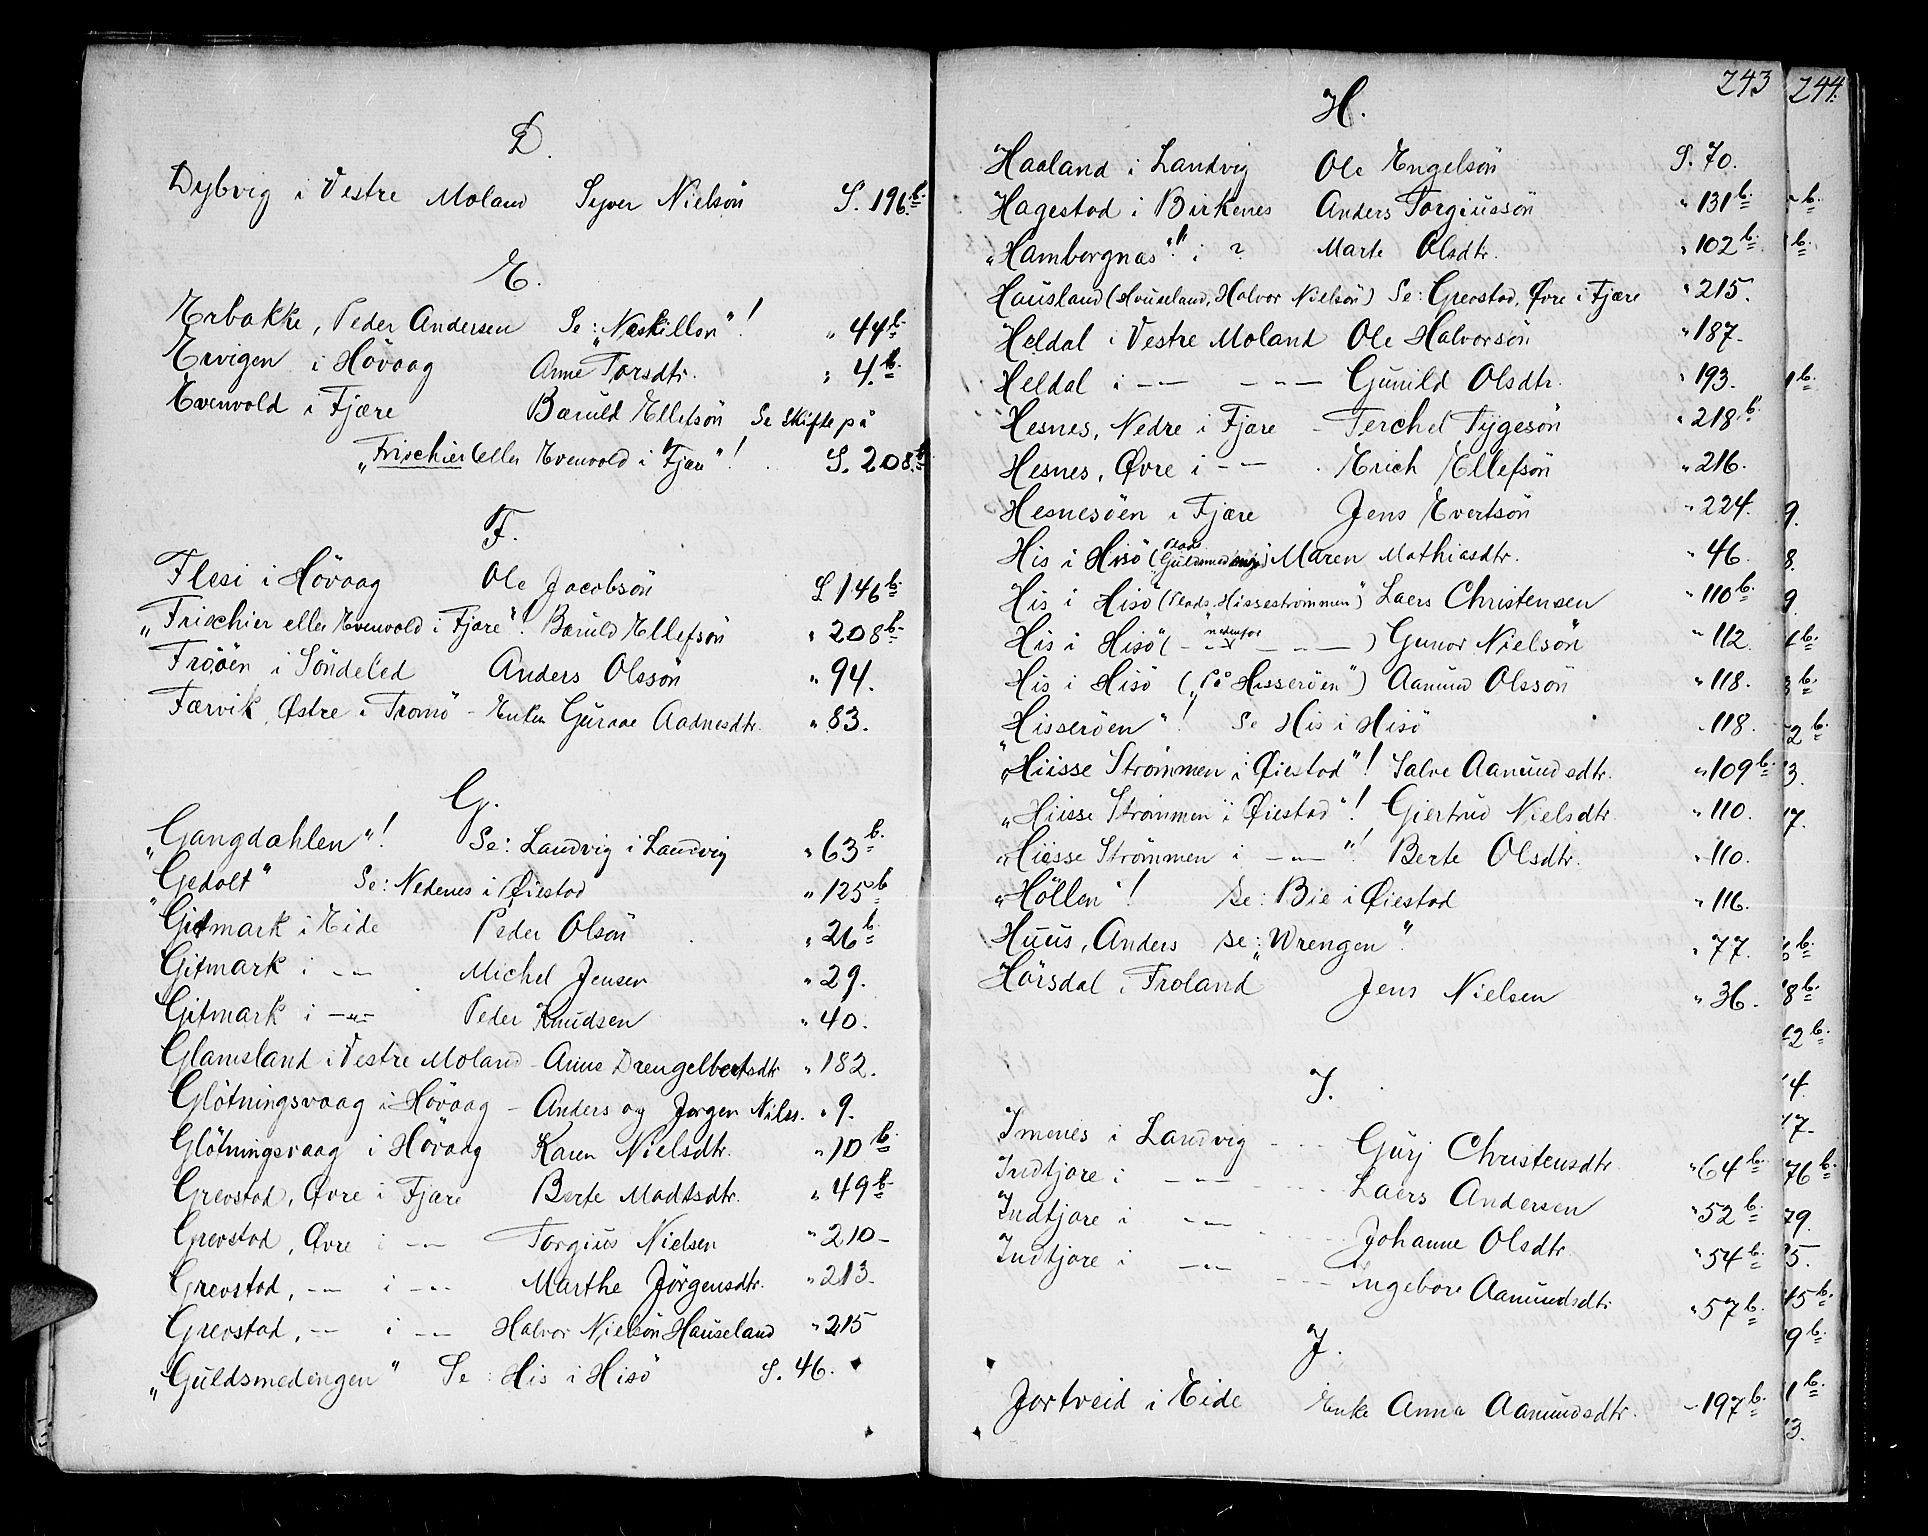 D.
Dybvig i Vestre Moland Syver Nielsön S. 196 b.
E.
Erbakke, Peder Andersen Se: „Neskillen"! „ 44 b.
Ervigen i Hövaag Anne Torsdtr. „ 4. b.
Evenvold i Fjære Bæruld Ellefsön Se Skifte på
„Frischier eller Evenvold i Fjære"! S. 208. b.
F.
Flesi i Hövaag Ole Jacobsön S. 146 b.
„Frischier eller Evenvold i Fjære"! Bæruld Ellefsön „ 208 b.
Fröoen i Söndeled Anders Olssön „ 94.
Færvik, Østre i Tromö - Enken Guraae Aadnesdtr. „ 83.
G.
„Gangdahlen"! Se: Landvig i Landvig „ 63 b.
„Gedalt" Se: Nedenes i Øiestad „ 125 b
Gitmark i Eide Peder Olsön „ 26 b.
Gitmark i -„- Michel Jensen „ 29.
Gitmark i -„- Peder Knudsen „ 40.
Glamsland i Vestre Moland - Anne Drengelbertsdtr „ 182.
Glötningsvaag i Hövaag - Anders og Jørgen Nilss. „ 9.
Glötningsvaag i Hövaag Karen Nielsdtr. „ 10 b.
Grevstad, Øvre i Fjære Berte Madtsdtr. „ 49 b.
Grevstad, Øvre i -„- Torgius Nielsen „ 210 -
Grevstad, -„- i -„- Marthe Jörgensdtr. „ 213.
Grevstad, -„- i -„- Halvor Nielsön Hauseland „ 215
„Guldsmedengen" Se: His i Hisö S. 46.
243
H.
Haaland i Landvig Ole Engelsön S. 70.
Hagestad i Birkenes Anders Torgiussön „ 131 b.
„Hambergnas"! i ? Marte Olsdtr. „ 102 b.
Hausland (Houseland, Halvor Nielsön) Se: Grevstad, Øvre i Fjære „ 215.
Heldal i Vestre Moland Ole Halvorsön „ 187.
Heldal i -„- -„- Gunild Olsdtr. „ 193.
Hesnes, Nedre i Fjære - Terchel Tygesön „ 218 b.
Hesnes, Øvre i -„- Erich Ellefsön „ 216.
Hesnesöen i Fjære Jens Evertsön „ 224.
His i Hisö (Plads Guldsmedenge) Maren Mathiasdtr. „ 46.
His i Hisö (Plads „Hissestrømmen") Laers Christensen „ 110 b.
His i Hisö (-„- nedenfor -„-) Gunor Nielsön „ 112.
His i Hisö („På Hisserøen") Aanund Olssön „ 118.
„Hisserøen"! Se His i Hisö „ 118.
„Hiisse Strømmen i Øiestad"! Salve Aanundsdtr. „ 109 b.
„Hiisse Strømmen i Øiestad"! Giertrud Nielsdtr. „ 110.
„Hiisse Strømmen i -„-"! Berte Olsdtr. „ 110.
„Höllen"! Se: Bie i Øiestad „ 116.
Huus, Anders Se: „Wrengen". „ 77.
Hörsdal i Froland Jens Nielsen „ 36.
I.
Imenes i Landvig - - - Gurj Christensdtr. „ 64 b.
Indtjore i -„- - - - Laers Andersen „ 52 b.
Indtjore i -„- - - - Johanne Olsdtr. „ 54 b.
Indtjore i -„- - - - Ingebore Aanundsdtr „ 57 b.
J.
Jortveid i Eide Enke Anna Aanundsdtr. „ 197 b.
244.